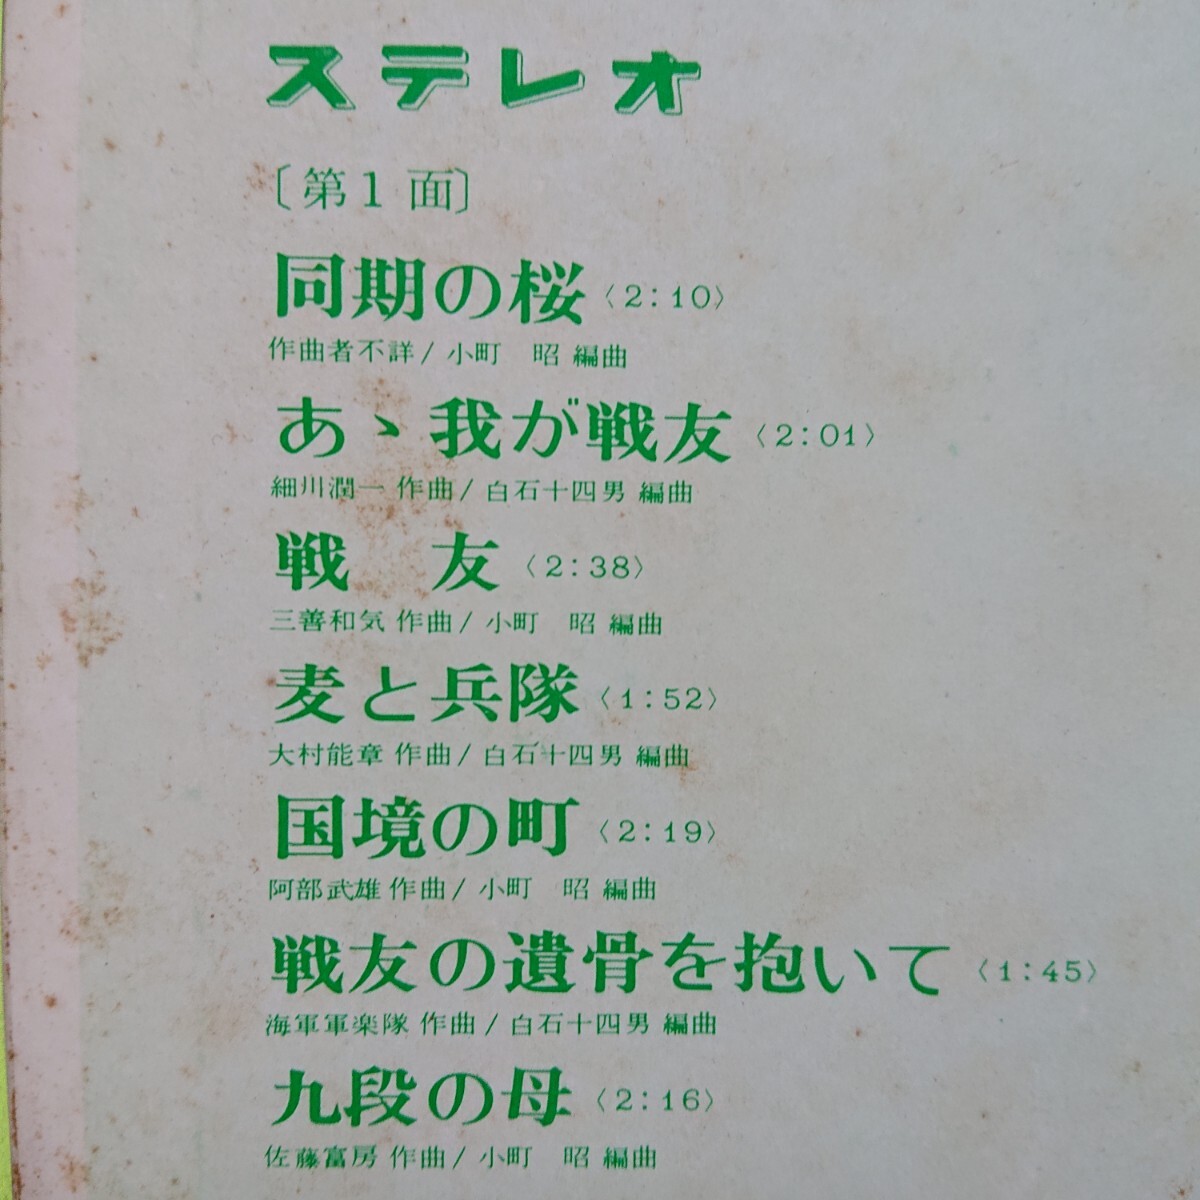 ステレオ
〔第1面〕
同期の桜〈2:10〉
作曲者不詳/小町 昭 編曲
あゝ我が戦友〈2:01〉
細川潤一 作曲/白石十四男 編曲
戦 友〈2:38〉
三善和気 作曲/小町 昭 編曲
麦と兵隊〈1:52〉
大村能章 作曲/白石十四男 編曲
国境の町〈2:19〉
阿部武雄 作曲/小町 昭 編曲
戦友の遺骨を抱いて〈1:45〉
海軍軍楽隊 作曲/白石十四男 編曲
九段の母〈2:16〉
佐藤富房 作曲/小町 昭 編曲